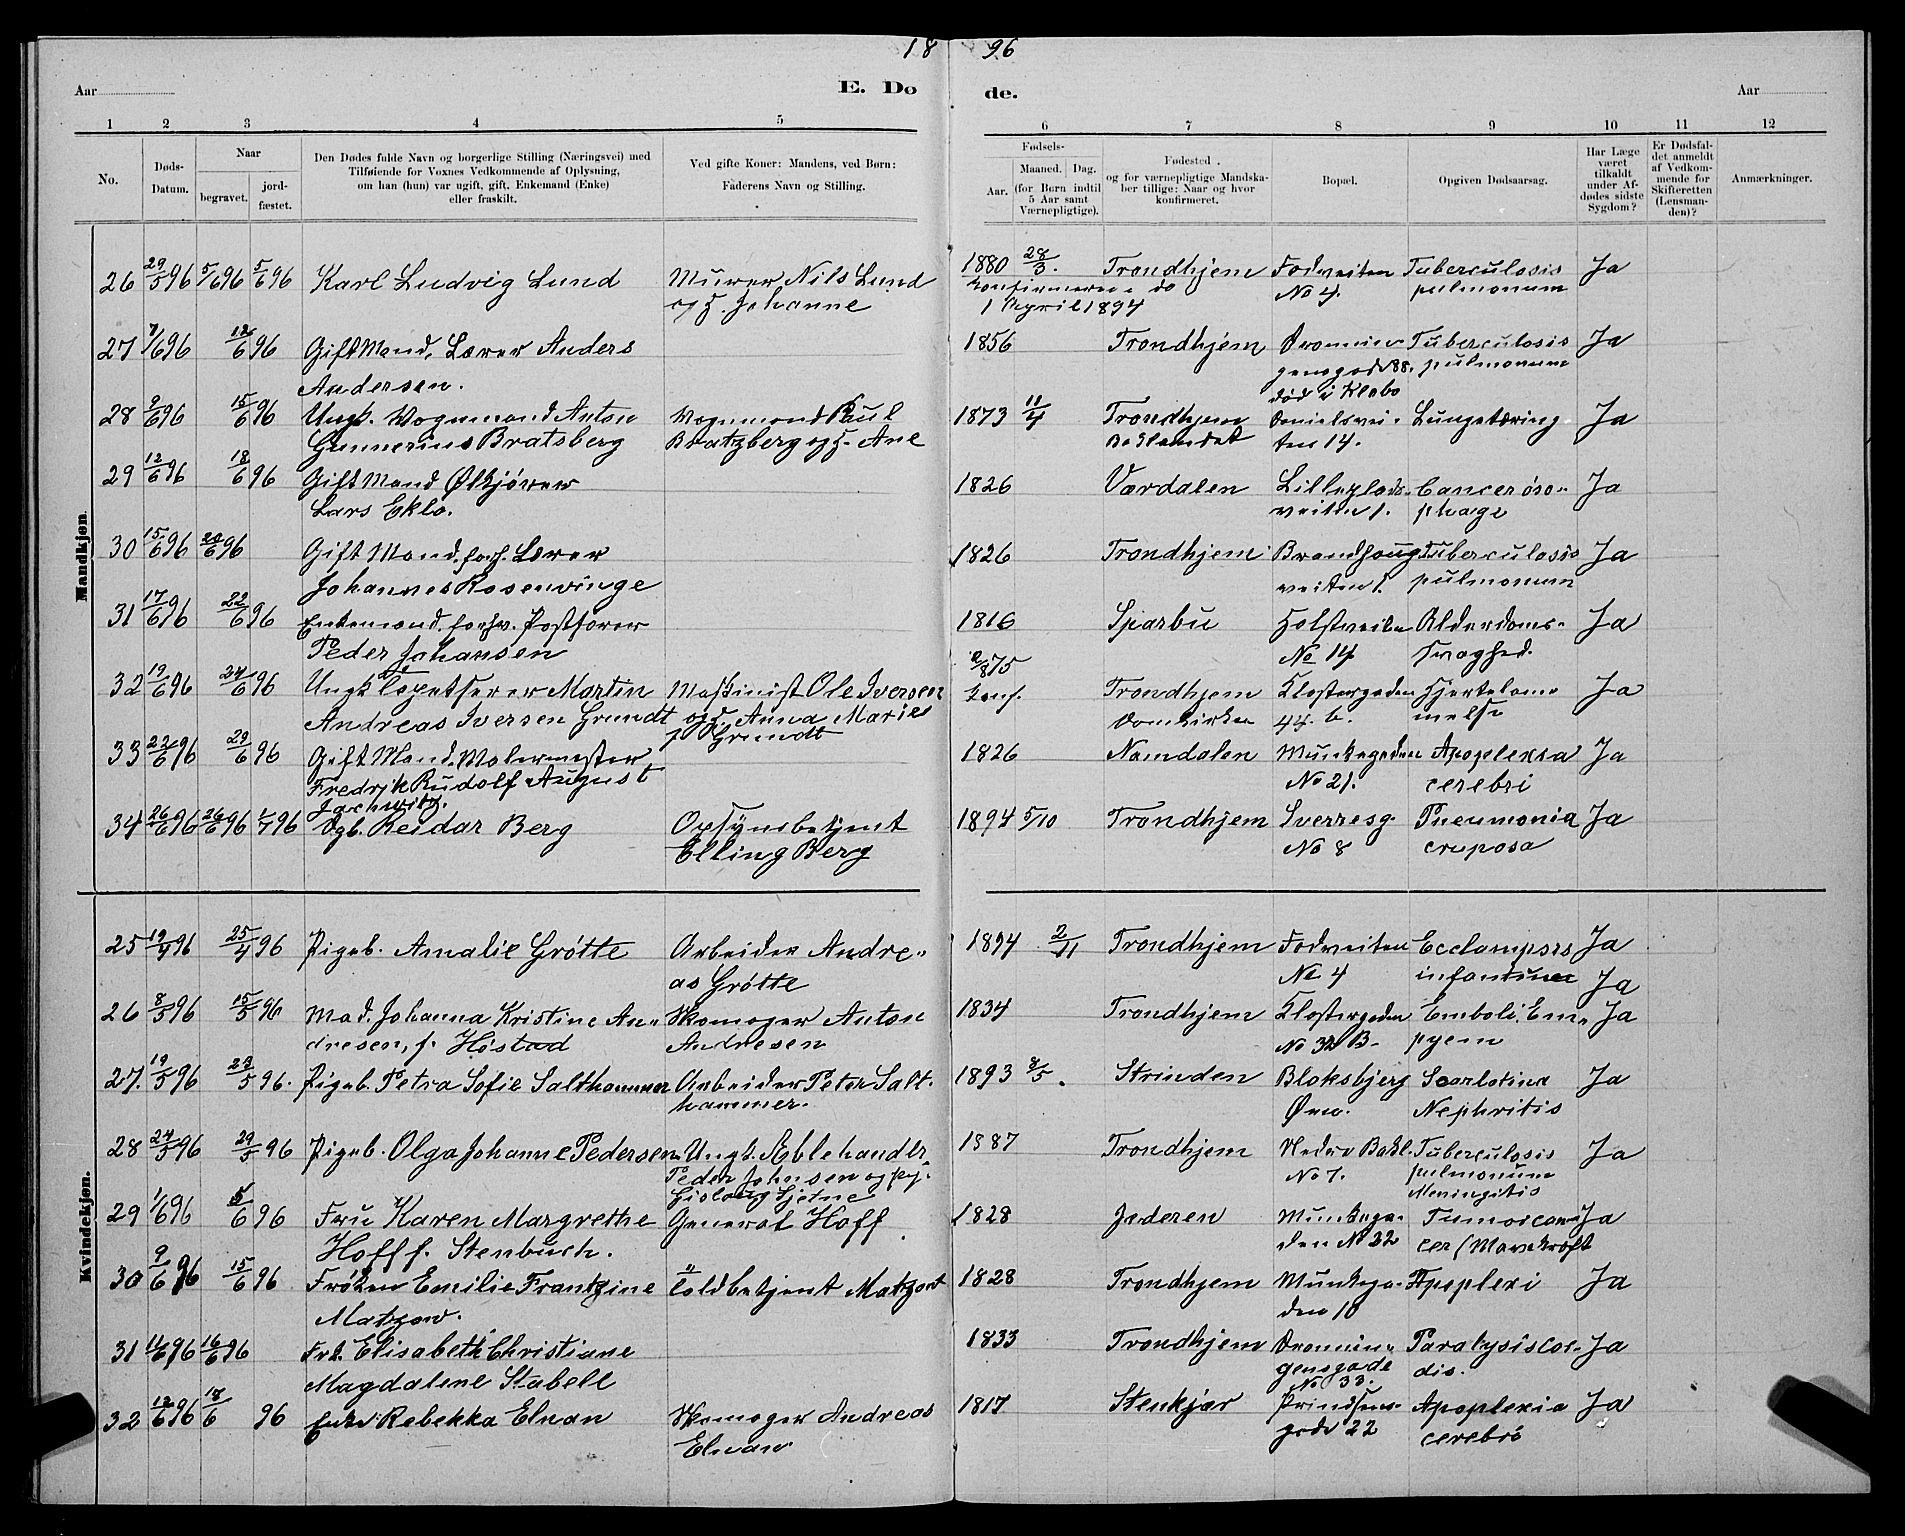 18 96
Aar E. Dø de. Aar
1 2 3 4 5 6 7 8 9 10 11 12
No.
Døds-Datum.
Naar
begravet.
jord-fæstet.
Den Dødes fulde Navn og borgerlige Stilling (Næringsvei) med
Tilføiende for Voxnes Vedkommende af Oplysning,
om han (hun) var ugift, gift, Enkemand (Enke)
eller fraskilt.
Ved gifte Koner: Mandens, ved Børn:
Faderens Navn og Stilling.
Fødsels-
Aar.
Maaned. Dag.
(for Børn indtil
5 Aar samt
Værnepligtige).
Fødested
og for værnepligtige Mandska-
ber tillige: Naar og hvor
konfirmeret.
Bopæl.
Opgiven Dødsaarsag.
Har Læge
været
tilkaldt
under Af-
dødes sidste
Sygdom?
Er Dødsfal-
det anmeldt
af Vedkom-
mende for
Skifteretten
(Lensman-
den)?
Anmærkninger.
Mandkjøn.
26 29/5 96 5/6 96 5/6 96 Karl Ludvig Lund Murer Nils Lund 1880 28/3. Trondhjem Fodveiten Tuberculosis Ja
og H. Johanne do No 4. pulmonum
1 April 1894
27 7/6 96 12/6 96 Gift Mand, Lærer Anders 1856 Trondhjem Dronnin- Tuberculosis Ja
Andersen. gensgade 88. pulmonum
død i Klæbo
28 9/6 96 15/6 96 Ungk. Vognmand Anton Vognmand Paul 1873 11/4 Trondhjem Danielsvei- Lungetæring Ja
Gunnerius Bratsberg Bratzberg og H. Ane Baklandet ten 14.
29 12/6 96 18/6 96 Gift Mand Ølkjører 1826 Værdalen Lilleplads- Cancer øso- Ja
Lars Eklo. veiten 1. phage
30 15/6 96 20/6 96 Gift Mand, forh. Lærer 1826 Trondhjem Brandhaug- Tuberculosis Ja
Johannes Rosenvinge veiten 1. pulmonum
31 17/6 96 22/6 96 Enkemand, forhv. Postfører 1816 Sparbu Holstveiten Alderdoms- Ja
Peder Johansen No 14 svaghed.
32 19/6 96 24/6 96 Ungk. Martin Maskinist Ole Iversen 1875 Trondhjem Klostergaden Hjertelam- Ja
Andreas Iversen Grundt og H. Anna Marie Konf. Domkirken 44. b. melse
f. Grundt
33 22/6 96 29/6 96 Gift Mand, Malermester 1826 Namdalen Munkegaden Apoplexia Ja
Fredrik Rudolf August No 21. cerebri
Jachwitz.
34 26/6 96 26/6 96 1/7 96 Dgb. Reidar Berg Opsynsbetjent 1894 5/10 Trondhjem Sverresg. Pneumonia Ja
Elling Berg No 8 cruposa
Kvindekjøn.
25 19/4 96 25/4 96 Pigeb. Amalie Grøtte Arbeider Andre- 1894 2/11 Trondhjem Fodveiten Ecclampsis Ja
as Grøtte No 4 infantum Ja
26 8/5 96 15/5 96 Mad. Johanna Kristine An- Skomager Anton 1834 Trondhjem Klostergaden Emboli, Em- Ja
dresen, f. Høstad Andresen No 32 B. pyem
27. 19/5 96 23/5 96. Pigeb. Petra Sofie Salthammer Arbeider Peter Salt- 1893 8/5. Strinden Bloksbjerg Scarlatina Ja
hammer. Øvre. Nephritis
28 24/5 96 29/5 96 Pigeb. Olga Johanne Pedersen Ungk. Æblehandler 1887 Trondhjem Nedre Bakl. Tuberculosis Ja
Peder Johnsen og Pg. No 7. pulmonum
Meningitis
29 1/6 96 5/6 96 Fru Karen Margrethe General Hoff 1828 Jæderen Munkega- Tumor can- Ja
Hoff f. Stenbuch. den No 22 cer (Mavekræft
30 9/6 96 15/6 96 Frøken Emilie Frantzine Toldbetjent Matzow 1828 Trondhjem Munkega- Apoplexi Ja
Matzow. den 10
31 11/6 96 16/6 96 Frk. Elisabeth Christiane 1833 Trondhjem Dronnin- Paralysis cor- Ja
Magdalene Stabell gensgade dis.
No 33.
32 12/6 96 18/6 96 Enke Rebekka Elvan Skomager Andreas 1817 Stenkjær Prindsens- Apoplexia Ja
Elvan gade 22 cerebri